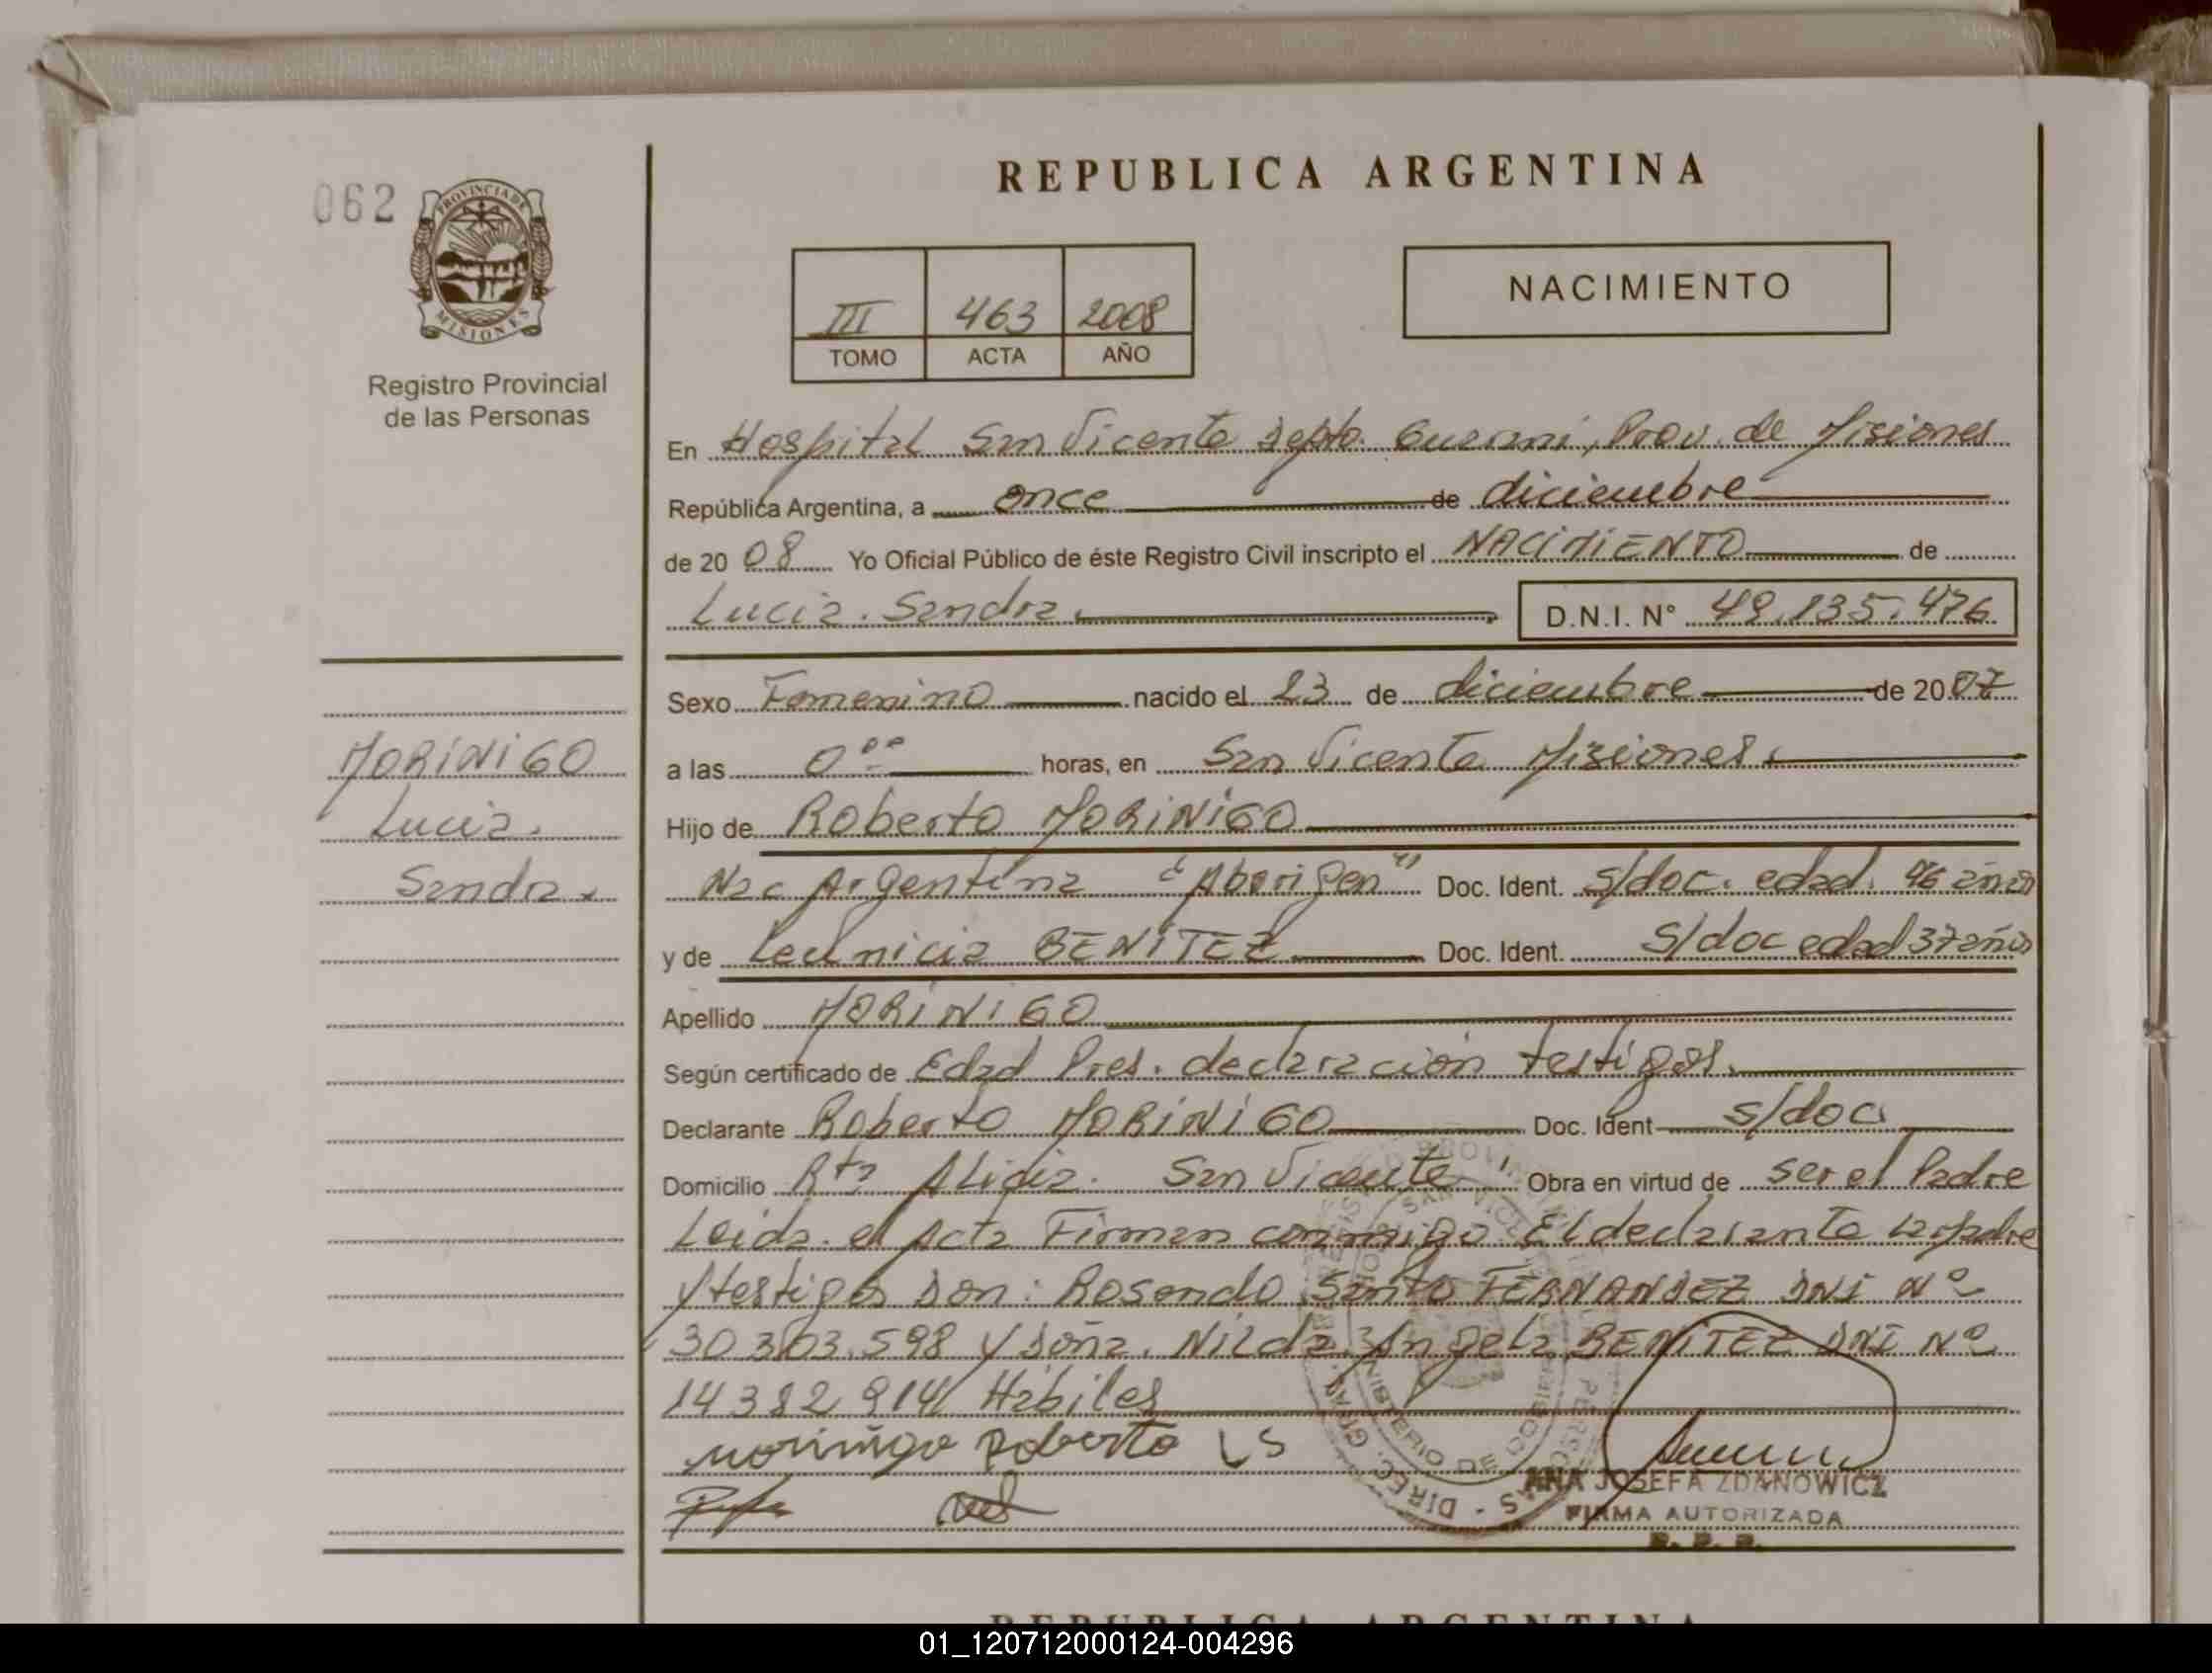 REPUBLICA ARGENTINA
062
PROVINCIA DE
MISIONES
Registro Provincial
de las Personas
III 463 2008
TOMO ACTA AÑO
NACIMIENTO
En Hospital San Vicente Depto. Guarani, Prov. de Misiones
República Argentina, a once de diciembre
de 20 08 Yo Oficial Público de éste Registro Civil inscripto el NACIMIENTO de
Lucia. Sandra. D.N.I. N° 49.135.476
Sexo Femenino nacido el 23 de diciembre de 20 07
a las 0°° horas, en San Vicente Misiones.
Hijo de Roberto MORINIGO
Nac Argentina "Aborigen" Doc. Ident. S/doc. edad. 46 años
y de BENITEZ Doc. Ident. S/doc edad 37 años
Apellido MORINIGO
Según certificado de Edad Pres. declaración testigos.
Declarante Roberto MORINIGO Doc. Ident S/doc.
Domicilio Rta Alicia. San Vicente Obra en virtud de ser el Padre
Leida el Acta Firman conmigo El declarante la Madre
y testigos Don: Rosendo Santo FERNANDEZ DNI N°
30.303.598 y Doña. Nilda Angela BENITEZ DNI N°
14382914 Hábiles
morinigo Roberto LS
ANA JOSEFA ZDANOWICZ
FIRMA AUTORIZADA
R. P. P.
MORINIGO
Lucia.
Sandra.
REPUBLICA ARGENTINA
01_120712000124-004296